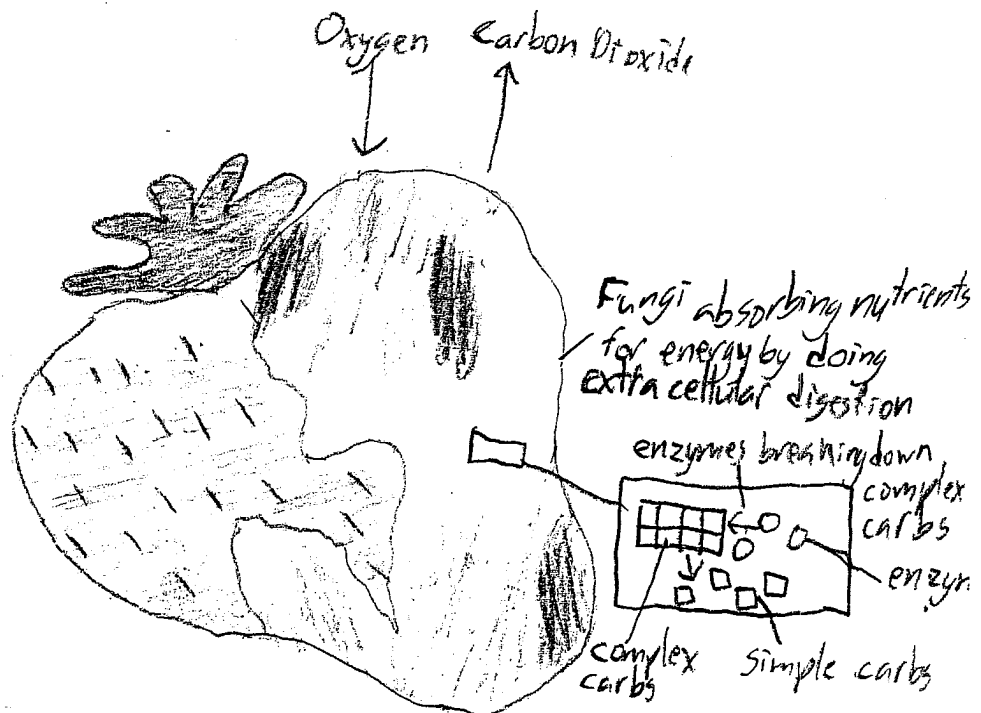 Oxygen Carbon Dioxide
Fungi absorbing nutrients
for energy by doing
extracellular digestion
enzymes breaking down
complex
carbs
enzym
complex
carbs
simple carbs